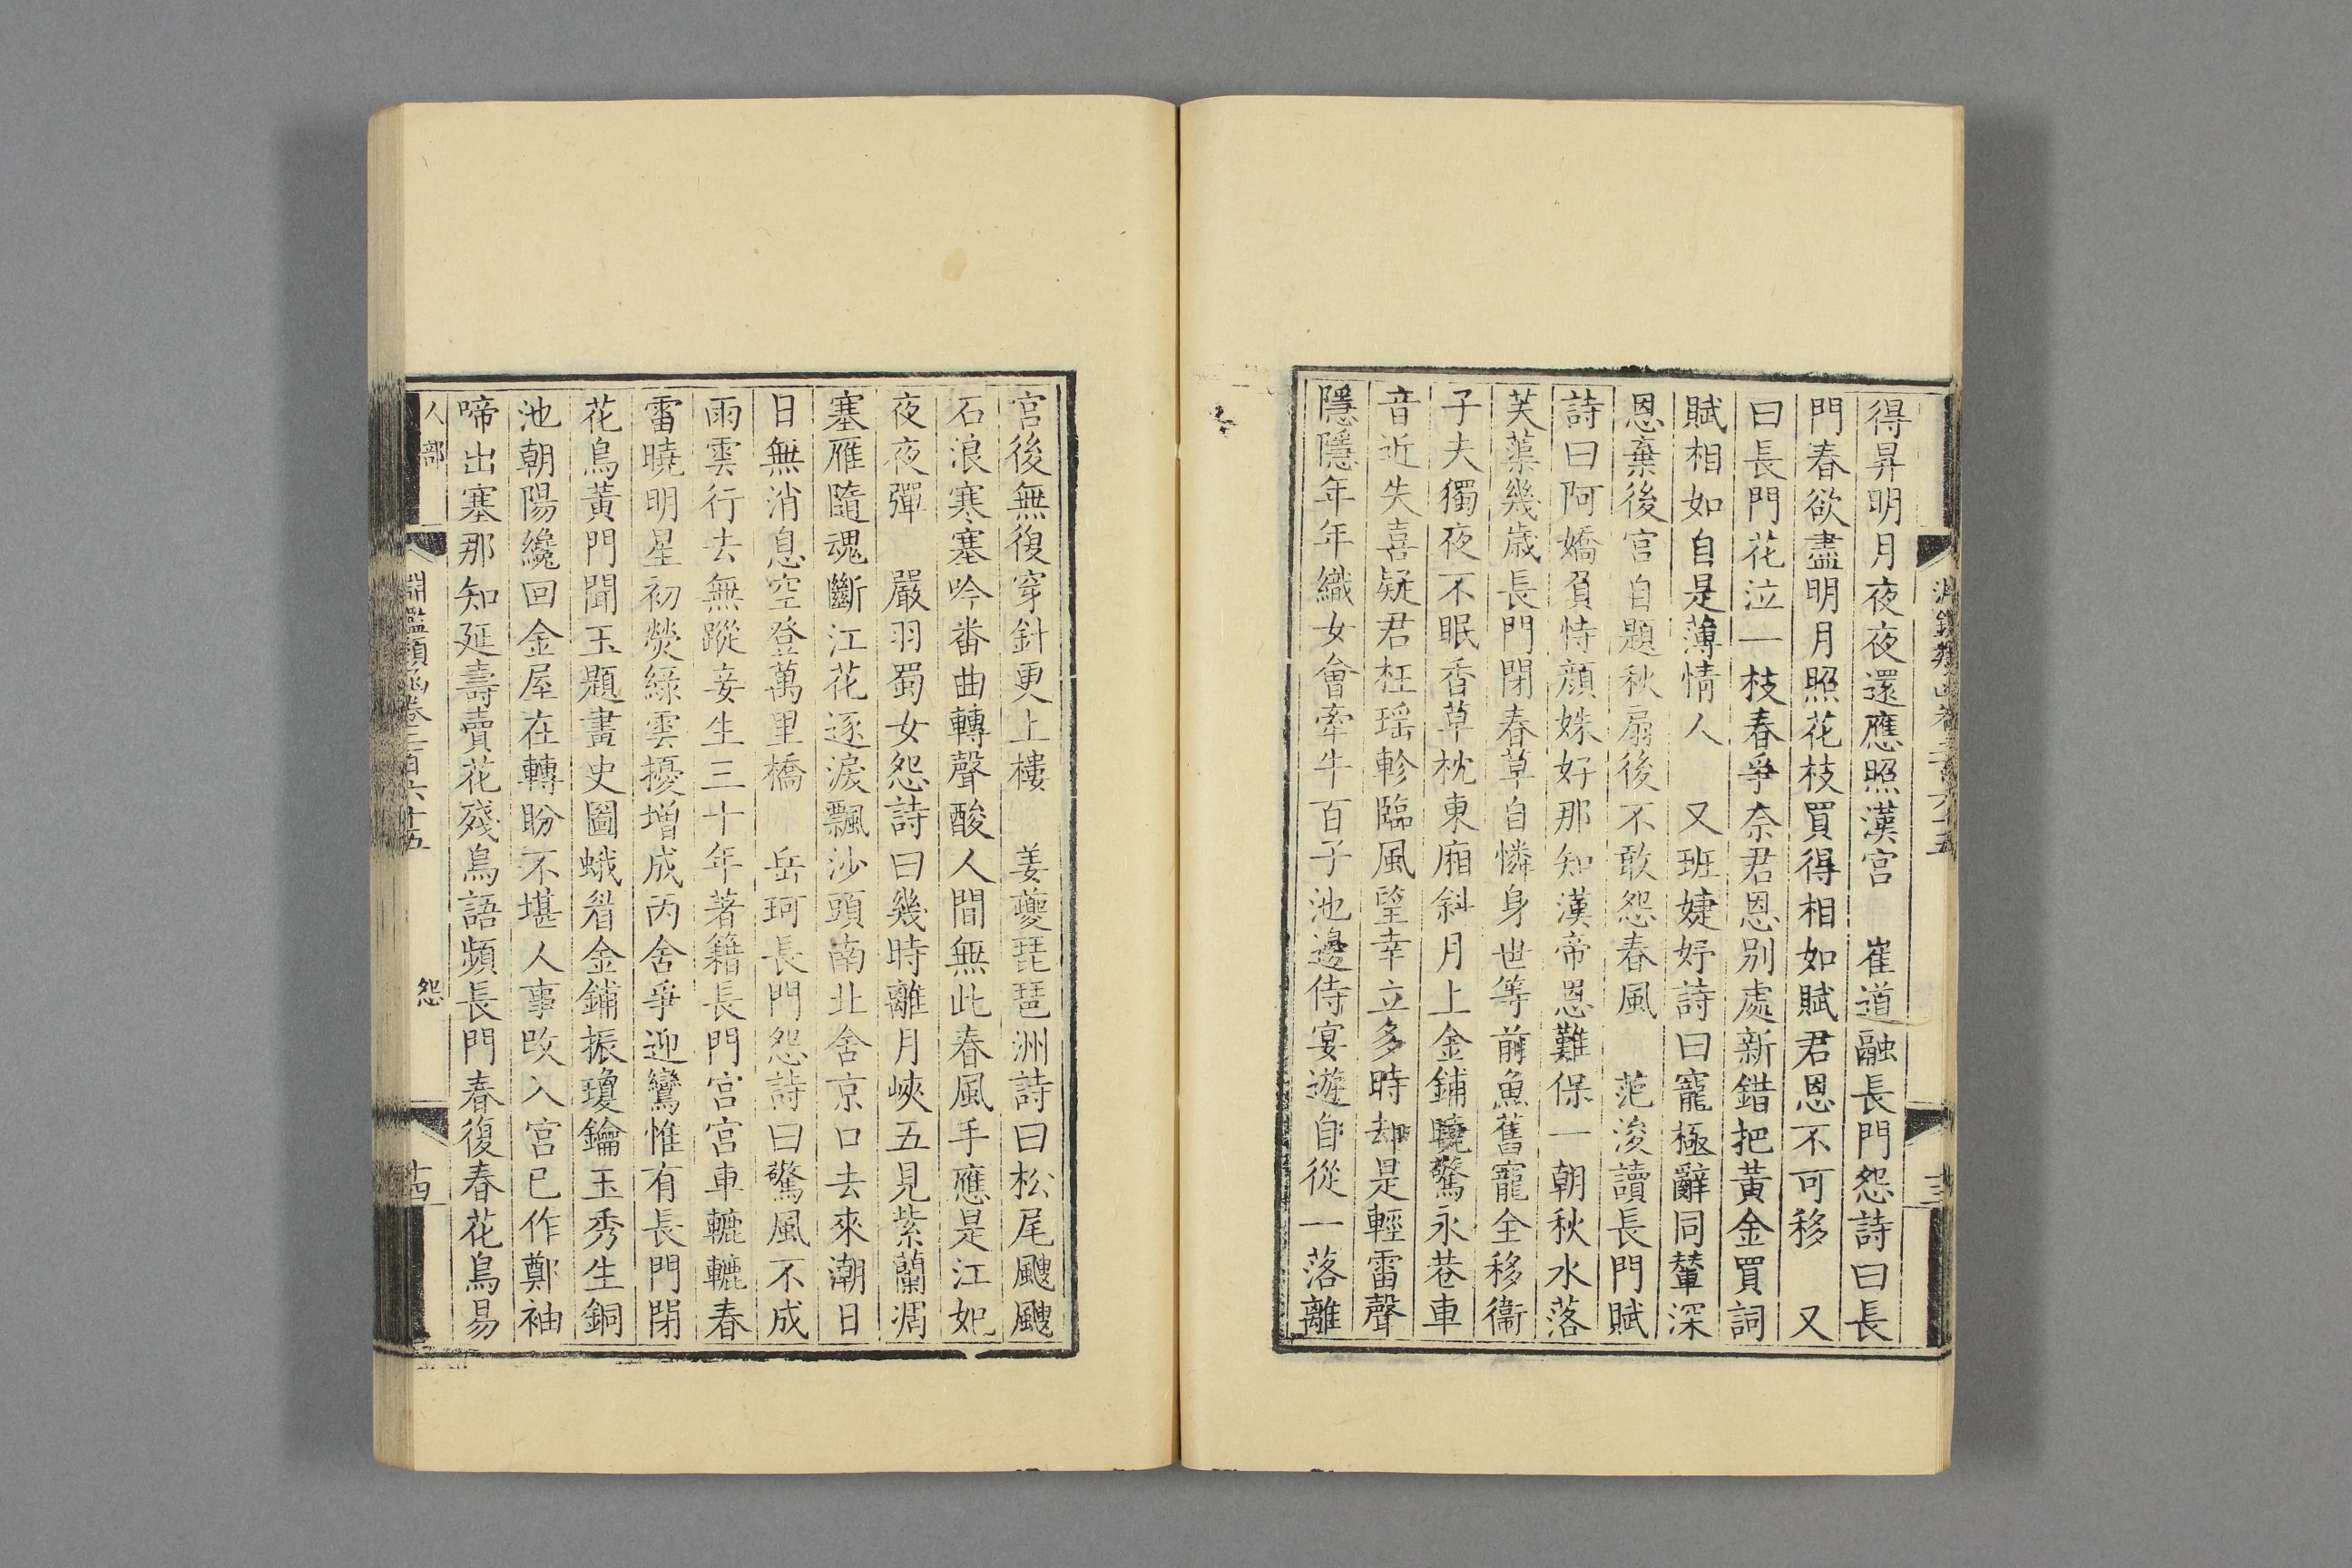 得昇明月夜夜還應照漢宫　崔道融長門怨詩曰長
門春欲盡明月照花枝買得相如賦君恩不可移　又
曰長門花泣一枝春爭奈君恩别處新錯把黄金買詞
賦相如自是薄情人　又班婕妤詩曰寵極辭同輦深
恩棄後宫自題秋扇後不敢怨春風　范浚讀長門賦
詩曰阿嬌負恃顔姝好那知漢帝恩難保一朝秋水落
芙蕖幾歲長門閉春草自憐身世等前魚舊寵全移衞
子夫獨夜不眠香草枕東廂斜月上金鋪曉驚永巷車
音近失喜疑君枉瑶軫臨風望幸立多時却是輕雷聲
隱隱年年織女會牽牛百子池邊侍宴遊自從一落離
宫後無復穿針更上樓　姜夔琵琶洲詩曰松尾颼颼
石浪寒塞吟番曲轉聲酸人間無此春風手應是江妃
夜夜彈　嚴羽蜀女怨詩曰幾時離月峽五見紫蘭凋
塞雁隨魂斷江花逐淚飄沙頭南北舍京口去來潮日
日無消息空登萬里橋　岳珂長門怨詩曰驚風不成
雨雲行去無蹤妾生三十年著籍長門宫宫車轆轆春
雷曉明星初熒緑雲擾增成丙舍爭迎鸞惟有長門閉
花鳥黄門聞玉題畫史圖蛾眉金鋪振瓊鑰玉秀生銅
池朝陽纔回金屋在轉盼不堪人事改入宫已作鄭袖
啼出塞那知延壽賣花殘鳥語頻長門春復春花鳥易
人部
淵鑑類函卷三百六十五
怨
十四